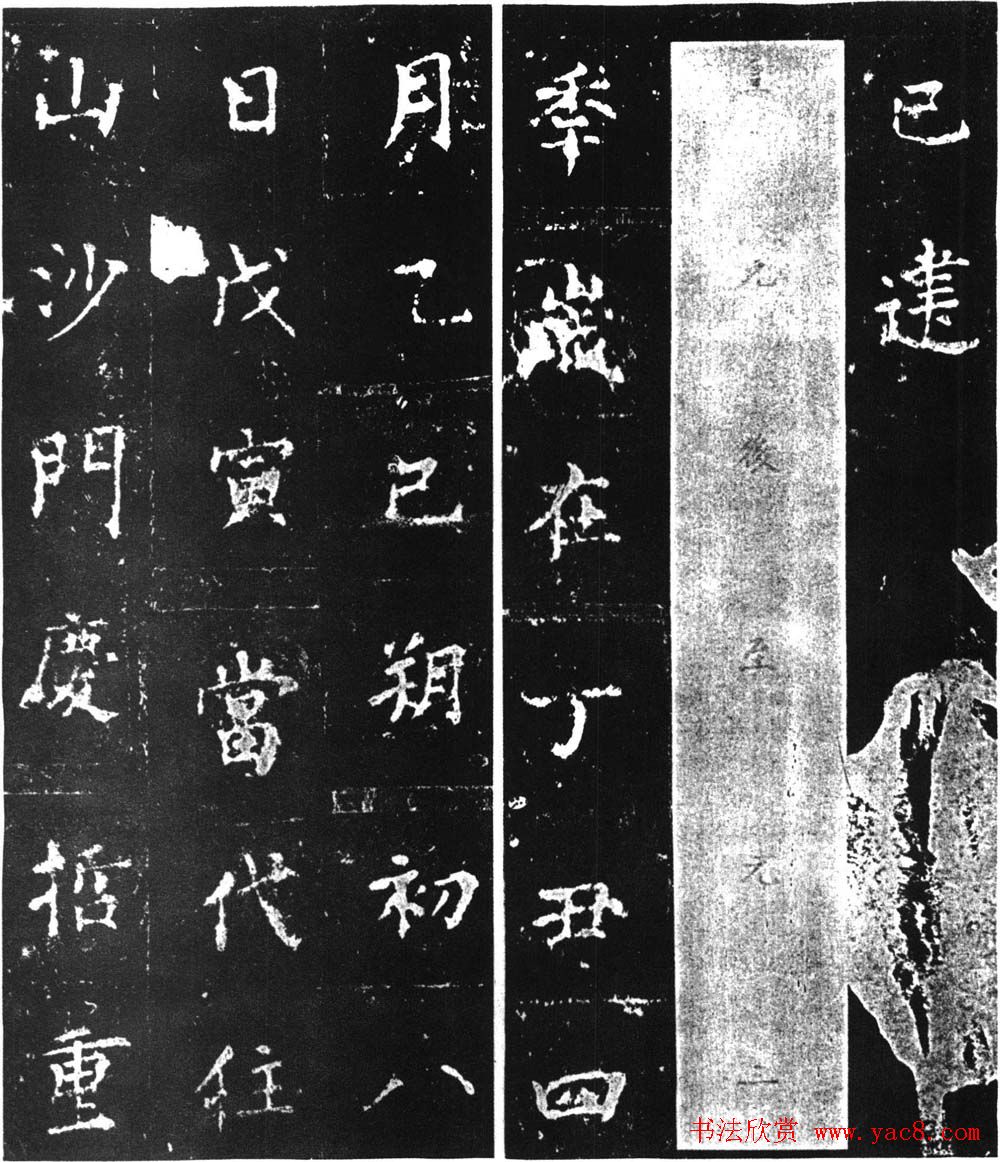 已達
元後至元
秊歲在丁丑四
月乙巳朔初八
日戊寅當代住
山沙門慶哲重
书法欣赏 www.yac8.com